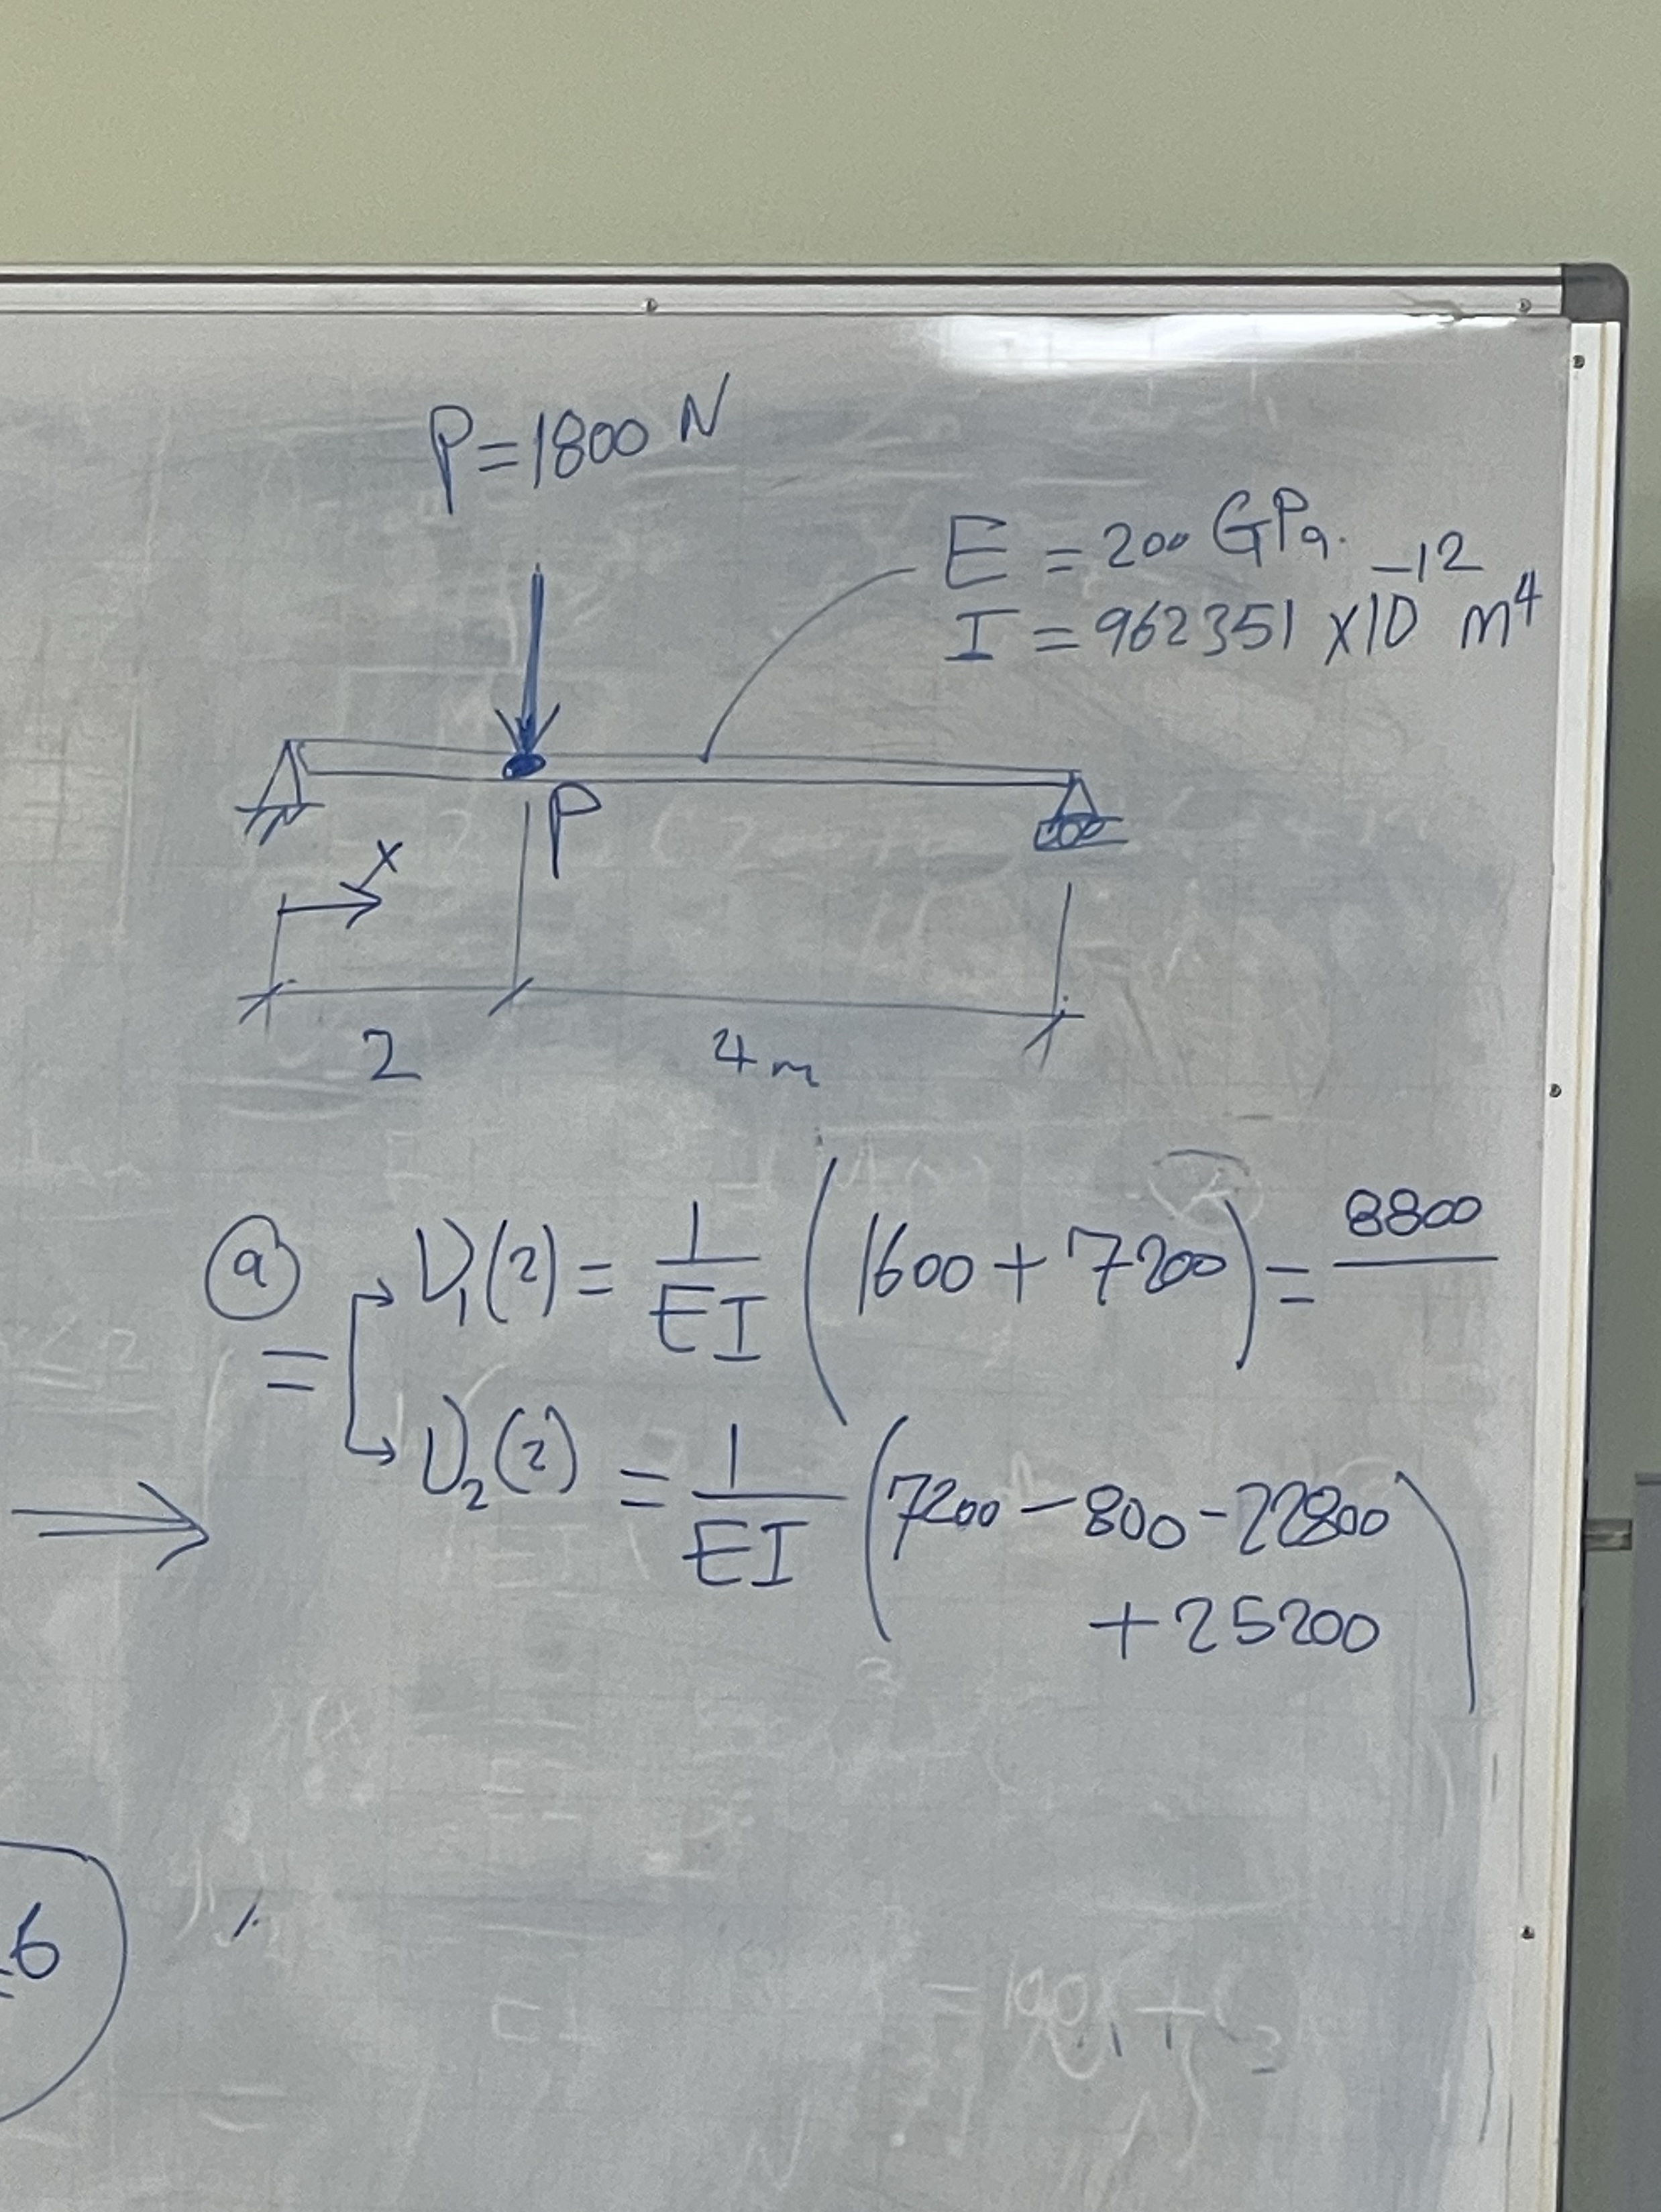 P=1800 N
E = 200 GPa.
I = 962351 x10⁻¹² m⁴
P
x
2
4m
a
= V₁(2) = 1/EI (1600 + 7200) = 8800
V₂(2) = 1/EI (7200 - 800 - 22800
+ 25200)
⇒
6